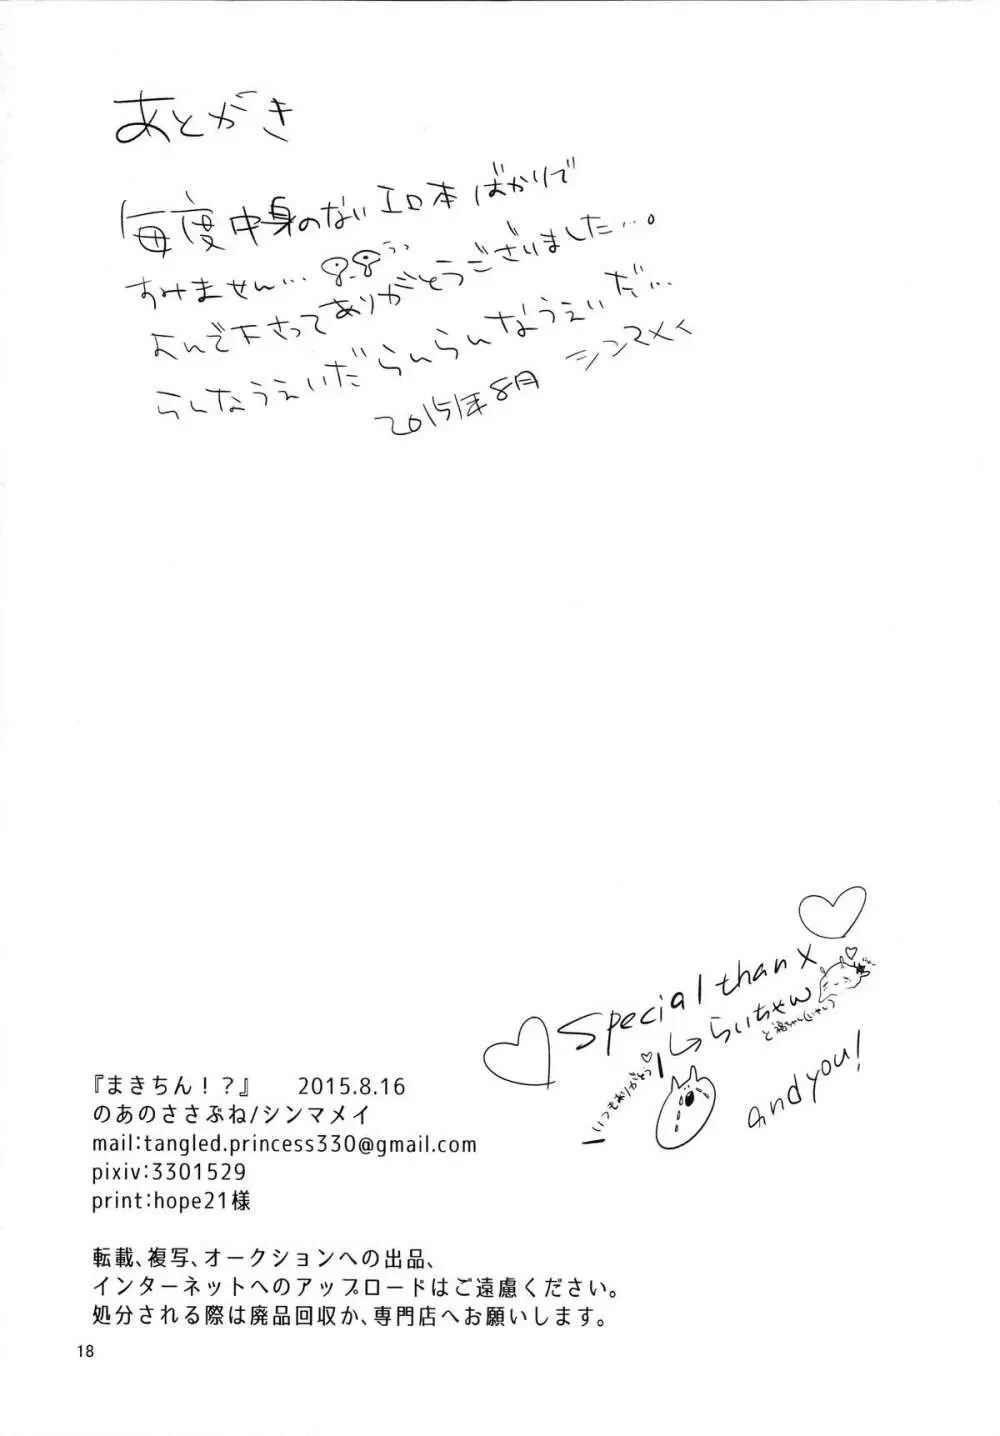 あとがき
毎度中身のないエロ本ばかりで
すみません…
よんで下さってありがとうございました…。
らんなうぇいだらんらんなうぇいだ…
2015年8月 シンマメイ
Special thanx
→らいちゃん
いつもありがとう♡
and you!
『まきちん！？』 2015.8.16
のあのささぶね/シンマメイ
mail:tangled.princess330@gmail.com
pixiv:3301529
print:hope21様
転載、複写、オークションへの出品、
インターネットへのアップロードはご遠慮ください。
処分される際は廃品回収か、専門店へお願いします。
18